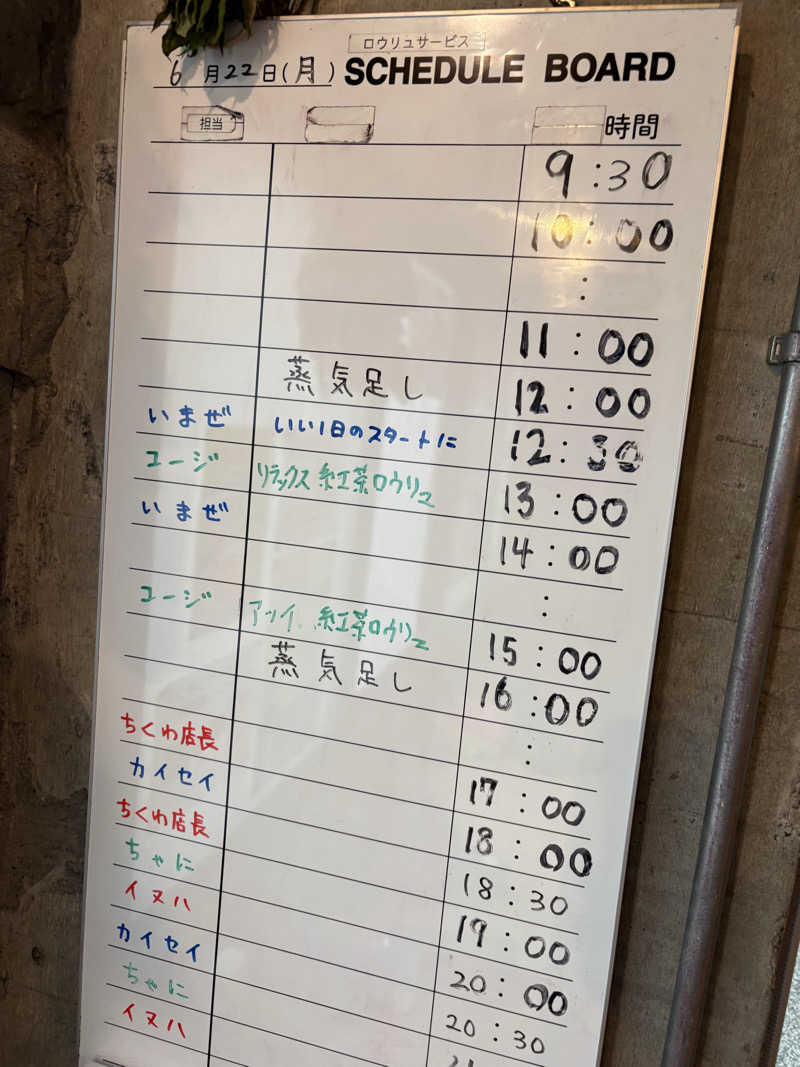 ロウリュサービス
6月22日(月) SCHEDULE BOARD
担当 時間
9:30
10:00
:
11:00
蒸気足し 12:00
いまぜ いい1日のスタートに 12:30
ユージ リラックス 紅茶ロウリュ 13:00
いまぜ 14:00
:
ユージ アツイ 紅茶ロウリュ 15:00
蒸気足し 16:00
:
ちくわ店長 17:00
カイセイ 18:00
ちくわ店長 18:30
ちゃに 19:00
イヌハ 20:00
カイセイ 20:30
ちゃに
イヌハ